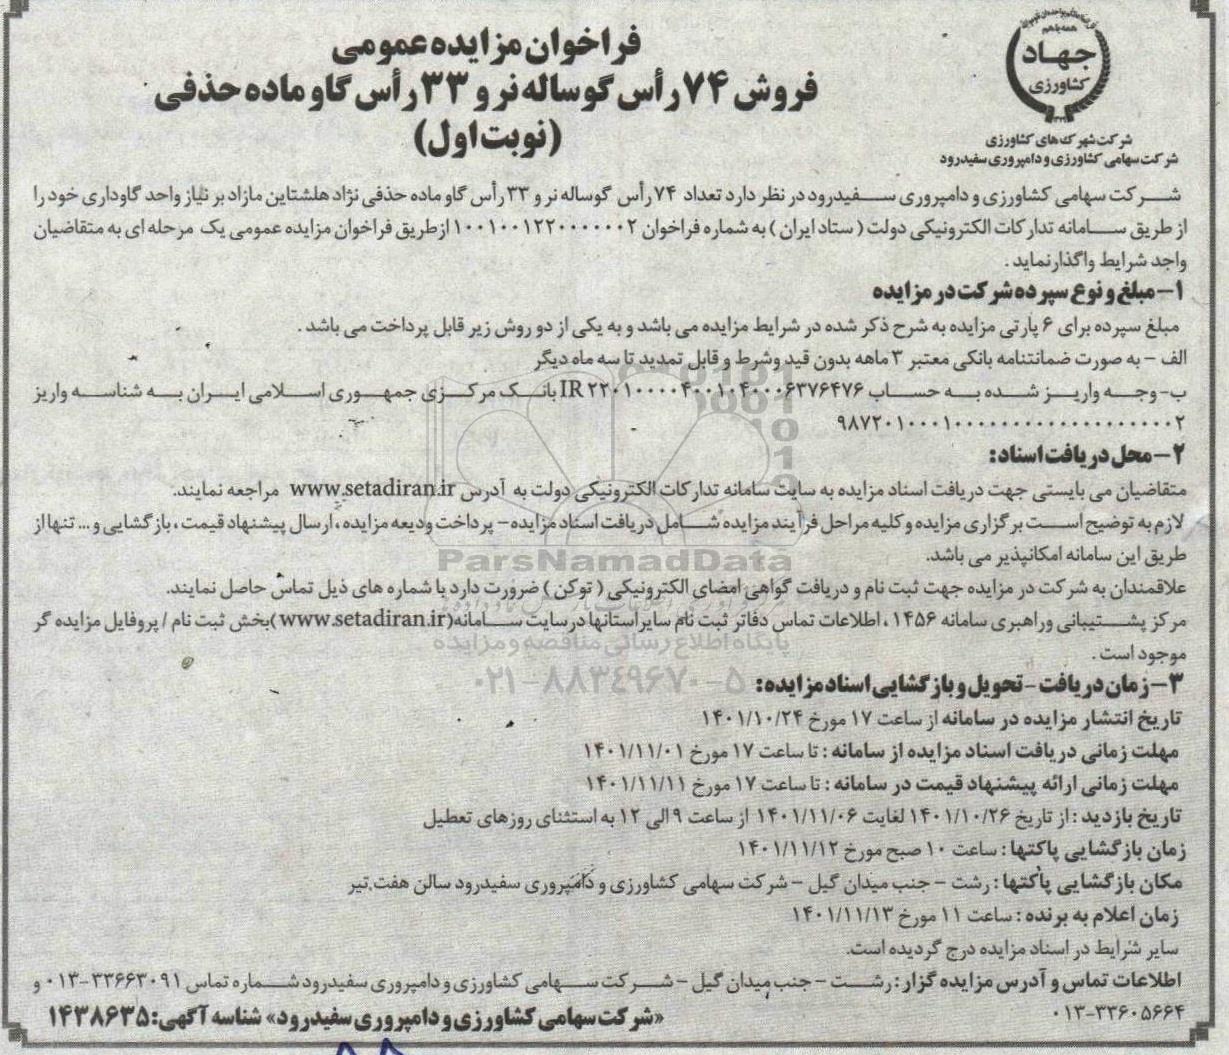 همه با هم
جهاد
کشاورزی
شرکت شهرک های کشاورزی
شرکت سهامی کشاورزی و دامپروری سفیدرود
فراخوان مزایده عمومی
فروش ۷۴ رأس گوساله نر و ۳۳ رأس گاو ماده حذفی
(نوبت اول)
شرکت سهامی کشاورزی و دامپروری سفیدرود در نظر دارد تعداد ۷۴ رأس گوساله نر و ۳۳ رأس گاو ماده حذفی نژاد هلشتاین مازاد بر نیاز واحد گاوداری خود را
از طریق سامانه تدارکات الکترونیکی دولت ( ستاد ایران ) به شماره فراخوان ۱۰۰۱۰۰۱۲۲۰۰۰۰۰۰۲ از طریق فراخوان مزایده عمومی یک مرحله ای به متقاضیان
واجد شرایط واگذار نماید .
۱- مبلغ و نوع سپرده شرکت در مزایده
مبلغ سپرده برای ۶ پارتی مزایده به شرح ذکر شده در شرایط مزایده می باشد و به یکی از دو روش زیر قابل پرداخت می باشد .
الف - به صورت ضمانتنامه بانکی معتبر ۳ ماهه بدون قید وشرط و قابل تمدید تا سه ماه دیگر
ب- وجه واریز شده به حساب IR ۲۲۰۱۰۰۰۰۴۰۰۱۰۴۰۰۰۶۳۷۶۴۷۶ بانک مرکزی جمهوری اسلامی ایران به شناسه واریز
۲- محل دریافت اسناد:
متقاضیان می بایستی جهت دریافت اسناد مزایده به سایت سامانه تدارکات الکترونیکی دولت به آدرس www.setadiran.ir مراجعه نمایند.
لازم به توضیح است برگزاری مزایده و کلیه مراحل فرآیند مزایده شامل دریافت اسناد مزایده - پرداخت ودیعه مزایده ، ارسال پیشنهاد قیمت ، بازگشایی و ... تنها از
طریق این سامانه امکانپذیر می باشد.
علاقمندان به شرکت در مزایده جهت ثبت نام و دریافت گواهی امضای الکترونیکی ( توکن ) ضرورت دارد با شماره های ذیل تماس حاصل نمایند.
مرکز پشتیبانی وراهبری سامانه ۱۴۵۶ ، اطلاعات تماس دفاتر ثبت نام سایر استانها در سایت سامانه (www.setadiran.ir) بخش ثبت نام / پروفایل مزایده گر
موجود است .
۳- زمان دریافت - تحویل و بازگشایی اسناد مزایده:
تاریخ انتشار مزایده در سامانه از ساعت ۱۷ مورخ ۱۴۰۱/۱۰/۲۴
مهلت زمانی دریافت اسناد مزایده از سامانه : تا ساعت ۱۷ مورخ ۱۴۰۱/۱۱/۰۱
مهلت زمانی ارائه پیشنهاد قیمت در سامانه : تا ساعت ۱۷ مورخ ۱۴۰۱/۱۱/۱۱
تاریخ بازدید : از تاریخ ۱۴۰۱/۱۰/۲۶ لغایت ۱۴۰۱/۱۱/۰۶ از ساعت ۹ الی ۱۲ به استثنای روزهای تعطیل
زمان بازگشایی پاکتها : ساعت ۱۰ صبح مورخ ۱۴۰۱/۱۱/۱۲
مکان بازگشایی پاکتها : رشت - جنب میدان گیل - شرکت سهامی کشاورزی و دامپروری سفیدرود سالن هفت تیر
زمان اعلام به برنده : ساعت ۱۱ مورخ ۱۴۰۱/۱۱/۱۳
سایر شرایط در اسناد مزایده درج گردیده است.
اطلاعات تماس و آدرس مزایده گزار : رشت - جنب میدان گیل - شرکت سهامی کشاورزی و دامپروری سفیدرود شماره تماس ۳۳۶۶۳۰۹۱-۰۱۳ و
۰۱۳-۳۳۶۰۵۶۶۴
«شرکت سهامی کشاورزی و دامپروری سفیدرود» شناسه آگهی: ۱۴۳۸۶۳۵
ParsNamadData
پایگاه اطلاع رسانی مناقصه و مزایده
۰۲۱-۸۸۳۴۹۶۷۰-۵